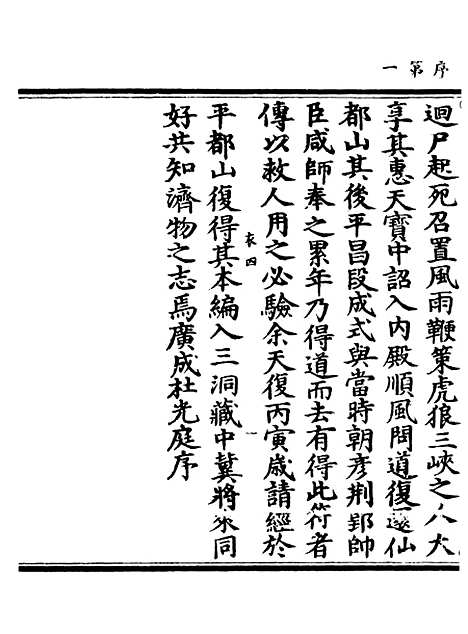 序第一
迴尸起死召置風雨鞭策虎狼三峽之人大
享其惠天寶中詔入內殿順風問道復還仙
都山其後平昌段成式與當時朝彥荆郢帥
臣咸師奉之累年乃得道而去有得此符者
傳以救人用之必驗余天復丙寅歲請經於
衣四
一
平都山復得其本編入三洞藏中冀將來同
好共知濟物之志焉廣成杜光庭序